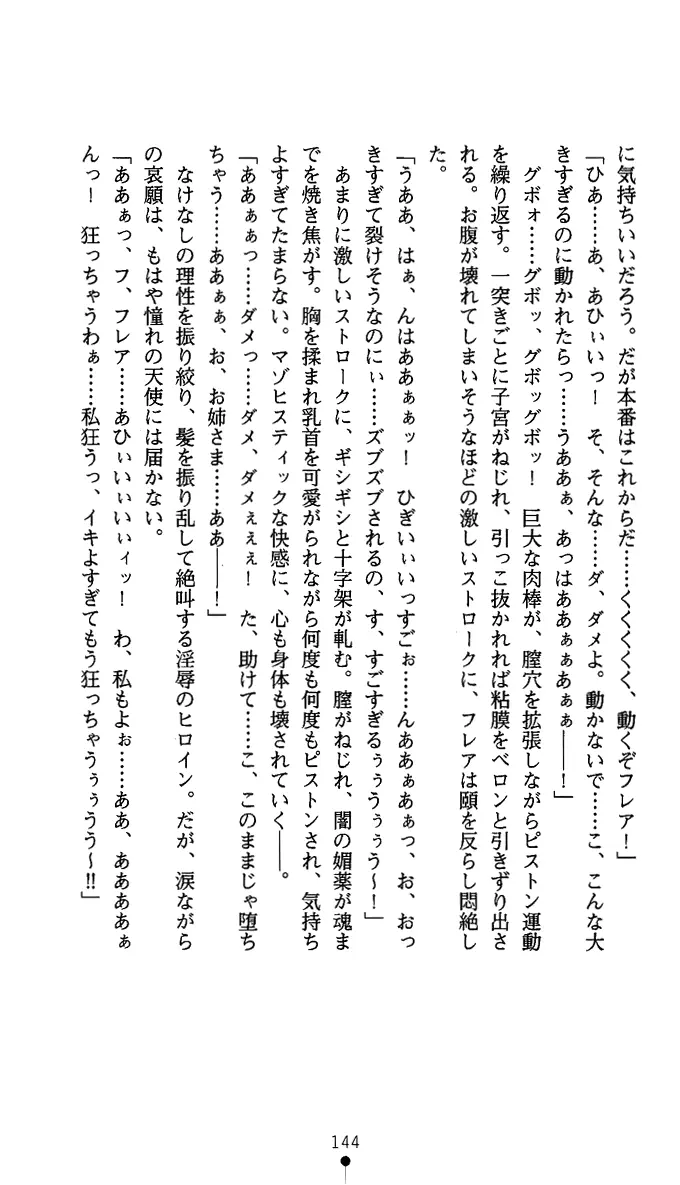 に気持ちいいだろう。だが本番はこれからだ……くくくくく、動くぞフレア！」
「ひあ……あ、あひぃいっ！　そ、そんな……ダ、ダメよ。動かないで……こ、こんな大
きすぎるのに動かれたらっ……うああぁ、あっはああぁぁあぁぁ――！」
　グボォ……グボッ、グボッグボッ！　巨大な肉棒が、膣穴を拡張しながらピストン運動
を繰り返す。一突きごとに子宮がねじれ、引っこ抜かれれば粘膜をベロンと引きずり出さ
れる。お腹が壊れてしまいそうなほどの激しいストロークに、フレアは頤を反らし悶絶し
た。
「うああ、はぁ、んはああぁぁッ！　ひぎいぃいいっすごぉ……んああぁあぁっ、お、おっ
きすぎて裂けそうなのにぃ……ズブズブされるの、す、すごすぎるぅぅうぅぅう～！」
　あまりに激しいストロークに、ギシギシと十字架が軋む。膣がねじれ、闇の媚薬が魂ま
でを焼き焦がす。胸を揉まれ乳首を可愛がられながら何度も何度もピストンされ、気持ち
よすぎてたまらない。マゾヒスティックな快感に、心も身体も壊されていく――。
「ああぁぁっ……ダメっ……ダメ、ダメぇぇぇ！　た、助けて……こ、このままじゃ堕ち
ちゃう……ああぁぁ、お、お姉さま……ああ――！」
　なけなしの理性を振り絞り、髪を振り乱して絶叫する淫辱のヒロイン。だが、涙ながら
の哀願は、もはや憧れの天使には届かない。
「ああぁっ、フ、フレア……あひぃいぃいぃィッ！　わ、私もよぉ……ああ、あああああぁ
んっ！　狂っちゃうわぁ……私狂うっ、イキよすぎてもう狂っちゃうぅぅうう～!!」
144